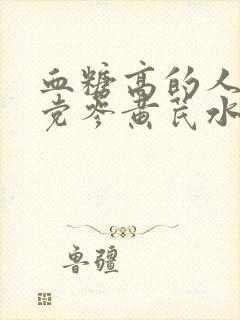 血糖高的人
党参黄芪水
鲁疆